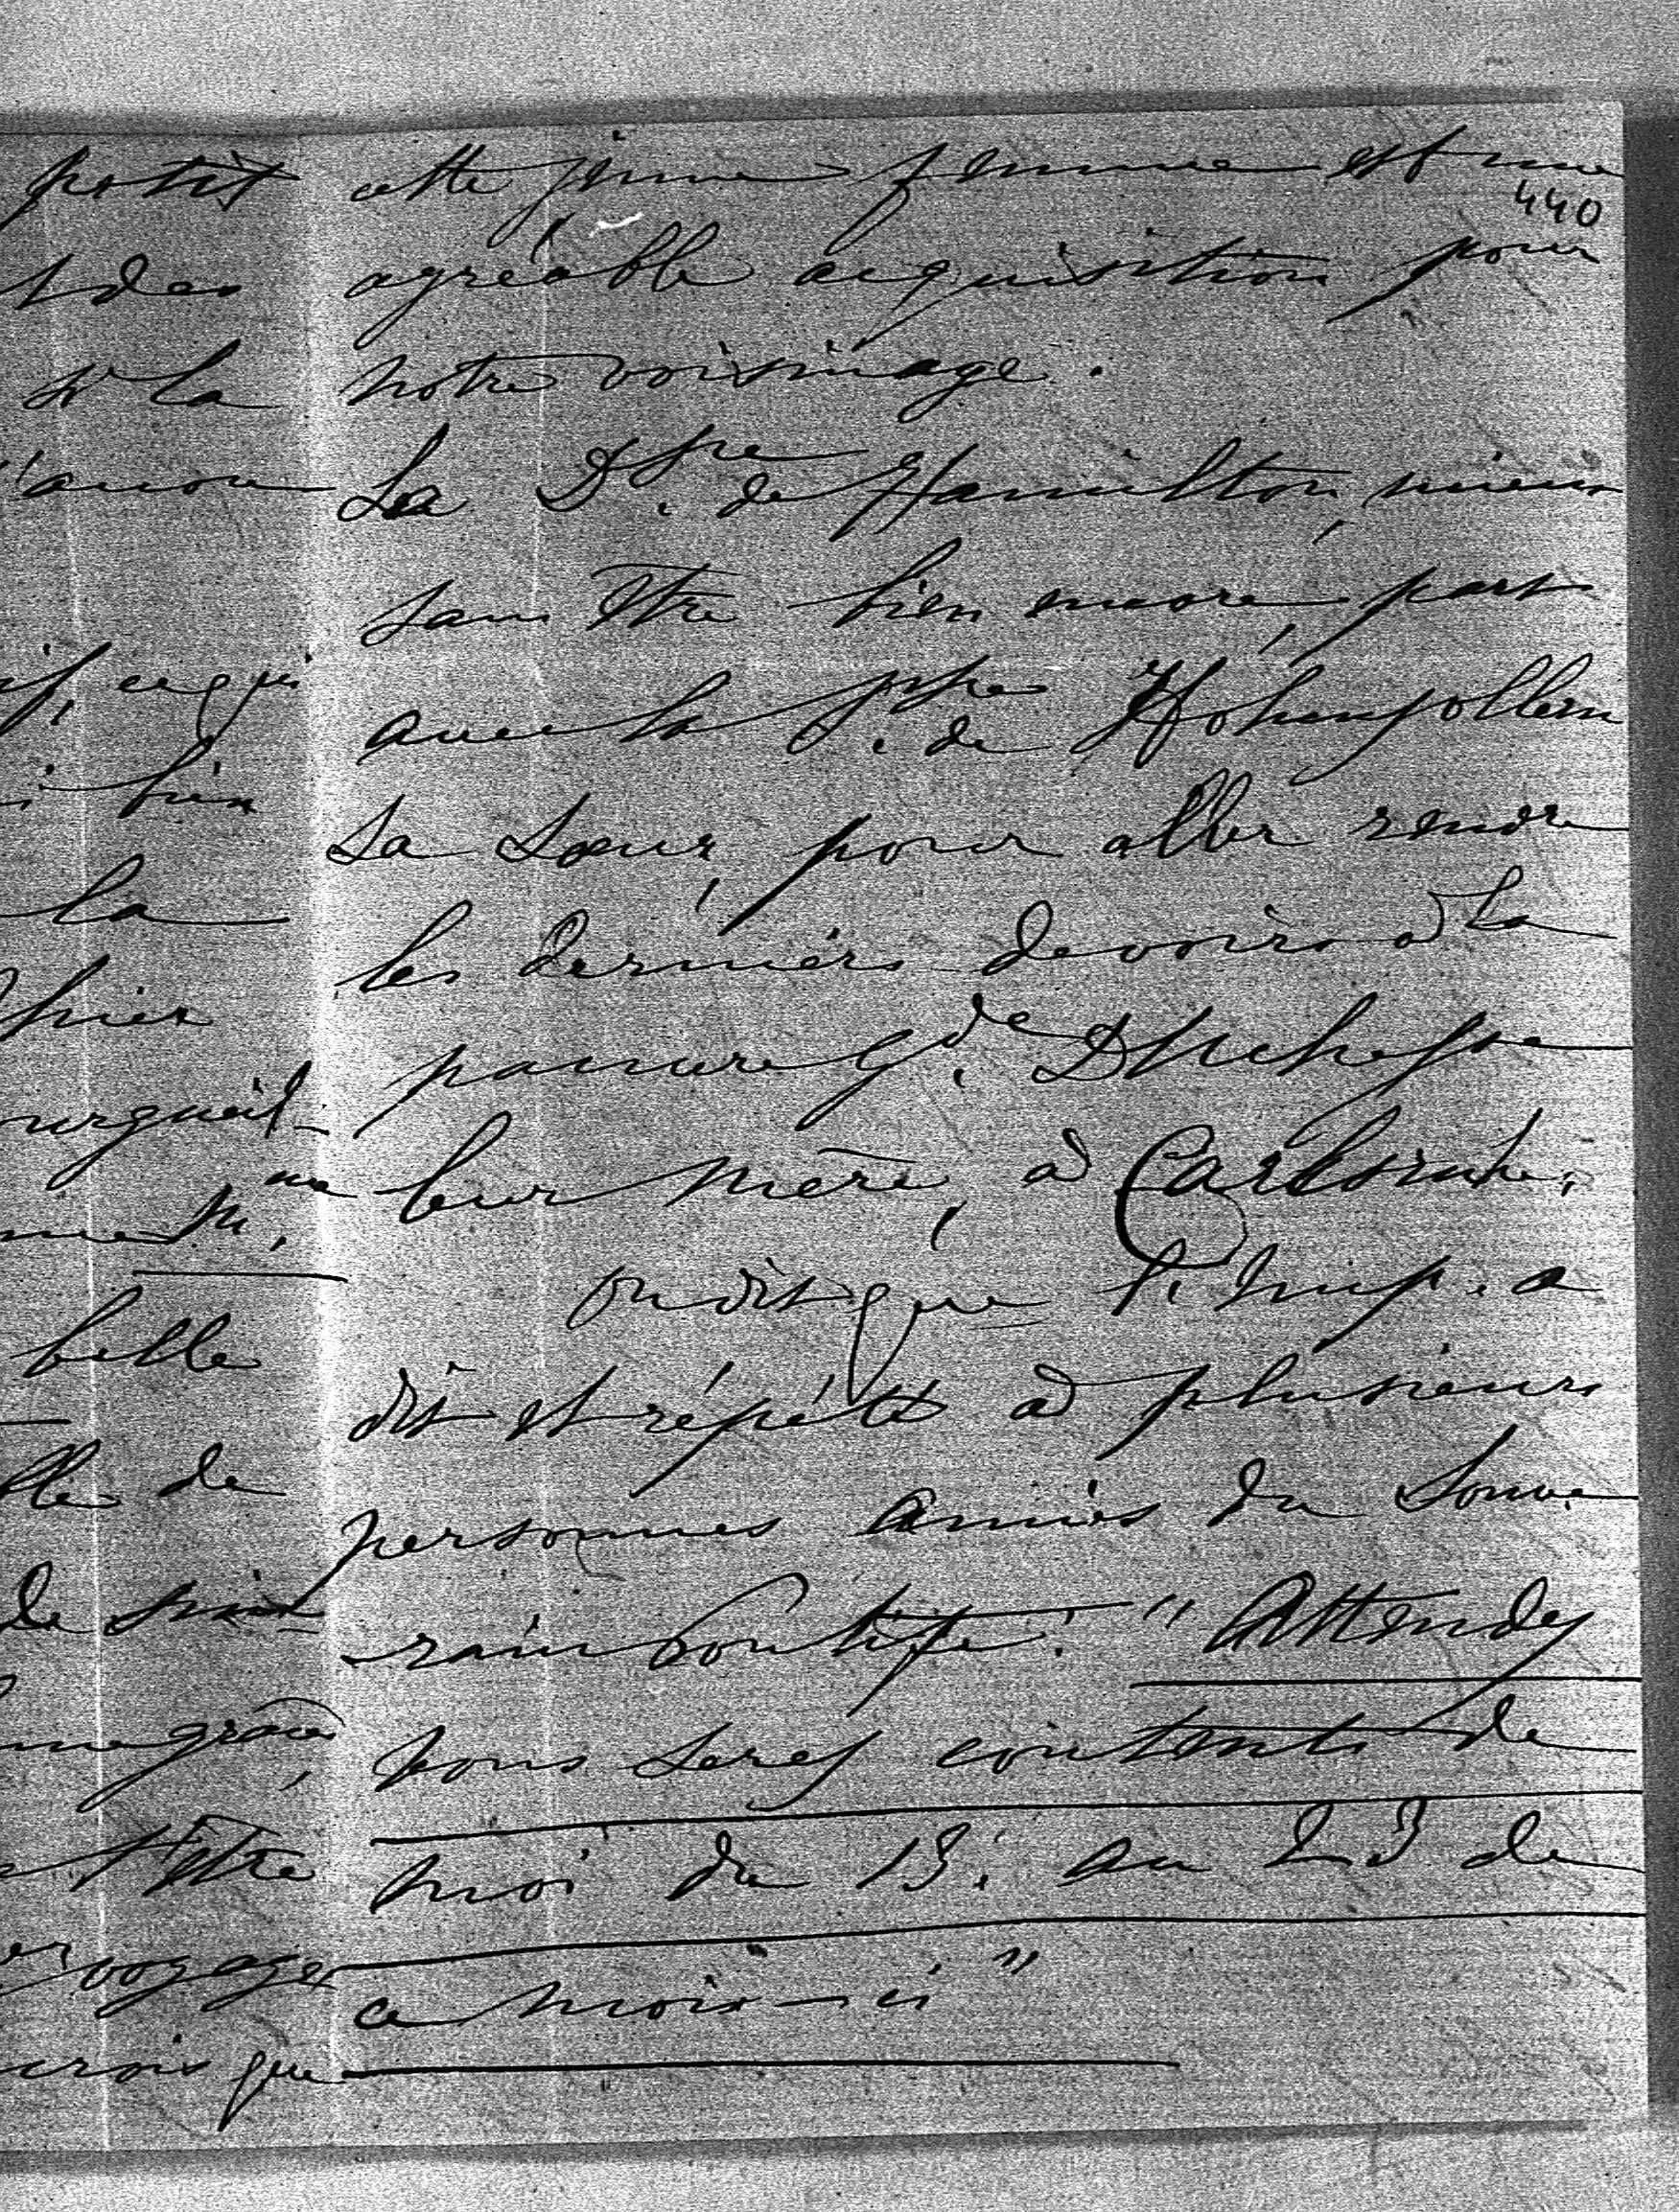 petit
t des
si la
ce qui
bien
la
belle
de
grâce
être
voyage
crois que
440
cette jeune femme est une
agréable acquisition pour
notre voisinage.
La D.sse de Hamilton, mieux
sans être bien encore, part
avec la P.sse de Hohenzollern
sa soeur, pour aller rendre
les derniers devoirs à la
pauvre G.de Duchesse
leur mère, à Carlsruhe.
On dit que l'Imp. a
dit et répété à plusieurs
personnes amies du Souve
-rain Pontife: "Attendez
vous serez contents de
moi du 13. au 23 de
ce mois-ci"